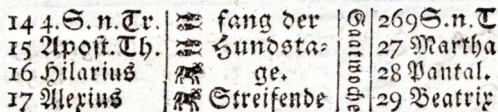 14 4. S. n. Tr. fang der 26 9 S. n. T
15 Apoſt. Th. Hundsta⸗ 27 Martha
16 Hilarius ge. 28 Pantal.
17 Alexius Streifende 29 Beatrix